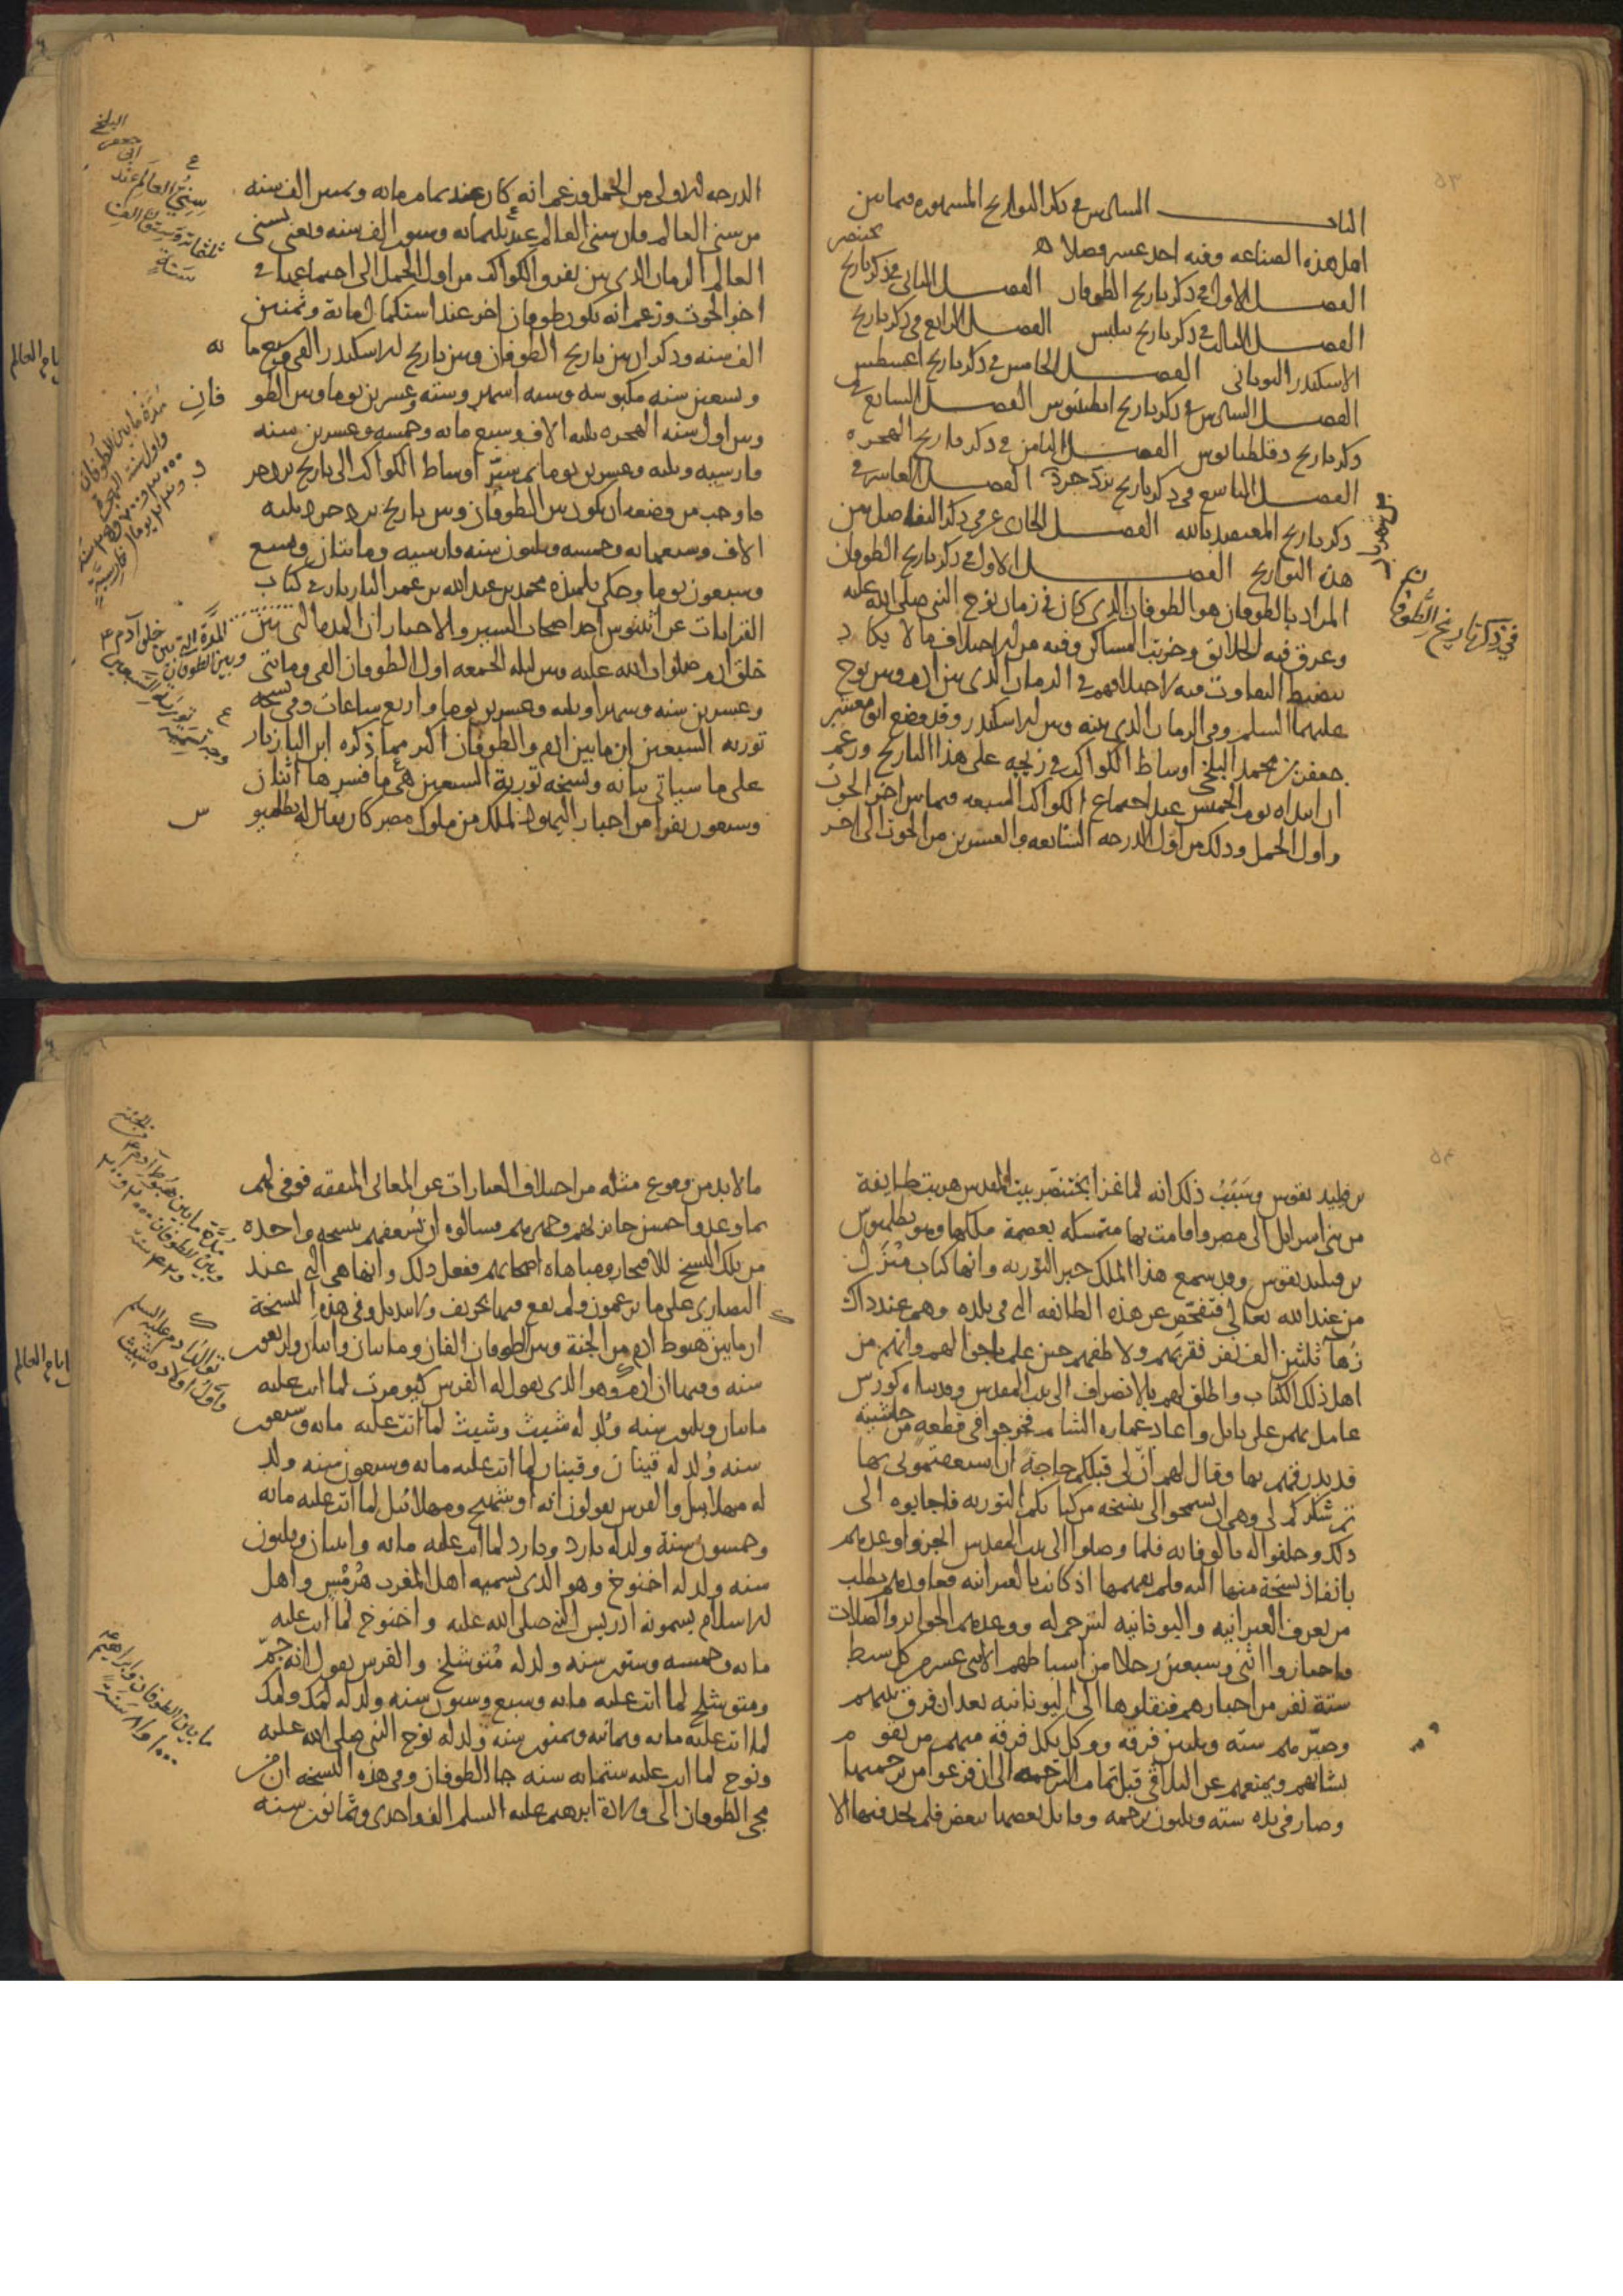 الباب السادس في ذكر التواريخ المشهورة فيما بين
اهل هذه الصناعه وفيه احد عشر فصلا
الفصل الاول في ذكر تاريخ الطوفان الفصل الثاني في ذكر تاريخ بختنصر
الفصل الثالث في ذكر تاريخ فيلبس الفصل الرابع في ذكر تاريخ
الاسكندر اليوناني الفصل الخامس في ذكر تاريخ اغسطس
الفصل السادس في ذكر تاريخ انطينوس الفصل السابع في
ذكر تاريخ دقلطيانوس الفصل الثامن في ذكر تاريخ الهجره
الفصل التاسع في ذكر تاريخ يزدجرد الفصل العاشر في
ذكر تاريخ المعتضد بالله الفصل الحادي عشر في ذكر التفاضل بين
هذه التواريخ الفصل الاول في ذكر تاريخ الطوفان
المراد بالطوفان هو الطوفان الذي كان في زمان نوح النبي صلى الله عليه
وغرق فيه الخلائق وخربت المساكن وفيه من الاختلاف ما لا يكاد
ينضبط التفاوت فيه لاختلافهم في الزمان الذي بين ادم وبين نوح
عليهما السلم وفي الزمان الذي بينه وبين الاسكندر وقد وضع ابو معشر
جعفر بن محمد البلخي اوساط الكواكب في زيجه على هذا التاريخ وزعم
ان ابتداه يوم الخميس عند اجتماع الكواكب السبعه فيما بين اخر الحوت
واول الحمل وذلك من اول الدرجه السابعه والعشرين من الحوت الى اخر
في ذكر تاريخ الطوفان
الدرجه الاولى من الحمل وزعم انه كان عند تمام مايه وثمنين الف سنه
من سني العالم وان سني العالم عنده ثلثمايه وستون الف سنه ويعني بسني
العالم الزمان الذي بين تفرق الكواكب من اول الحمل الى اجتماعها في
اخر الحوت وزعم انه يكون طوفان اخر عند استكمال المائة وثمنين
الف سنه وذكر ان بين تاريخ الطوفان وبين تاريخ الاسكندر الفي وسبع مايه
وتسعين سنه مكبوسه وسبعه اشهر وسته وعشرين يوما وبين الطوفان
وبين اول سنه الهجره ثلثه الاف وسبع مائه وخمسه وعشرين سنه
فارسيه وثلثه وعشرين يوما ثم سيّر اوساط الكواكب الى تاريخ يزدجرد
فاوجب من وضعه ان يكون بين الطوفان وبين تاريخ يزدجرد ثلثه
الاف وسبعمايه وخمسه وثلثون سنه فارسيه ومائتان وتسع
وسبعون يوما وحكى تلميذه محمد بن عبد الله بن عمر البازيار في كتاب
القرانات عن اثينوس احد اصحاب السير والاخبار ان المده التي بين
خلق ادم صلوات الله عليه وبين ليله الجمعه اول الطوفان الفي ومائتي
وعشرين سنه وشهرا وثلثه وعشرين يوما واربع ساعات وفي نسخه
توريه السبعين ان ما بين ادم والطوفان اكثر مما ذكره ابن البازيار
على ما سياتي بيانه ونسخه تورية السبعين هي ما فسرها اثنان
وسبعون نفرا من احبار اليهود لملك من ملوك مصر كان يقال له بطلميوس
سني العالم عند ابي جعفر البلخي
ثلثمائة وستون الف سنة
مدة ما بين الطوفان
واول سنة الهجرة
المدة التي بين خلق آدم
وبين الطوفان
وجه تسمية تورية السبعين
تاريخ العالم
بن فيلدلفوس وسَبَبُ ذلك انه لما غزا بختنصر بيت المقدس هربت طايفة
من بني اسرايل الى مصر واقامت بها متمسكه بعصمة ملكها وهو بطلميوس
بن فيلدلفوس وقد سمع هذا الملك خبر التوريه وانها كتاب منزل
من عند الله تعالى فتفحص عن هذه الطائفه التي في بلده وهم عند ذاك
زُهآ ثلثين الف نفر فقربهم ولاطفهم حين علم ما جرا لهم وانهم من
اهل ذلك الكتاب واطلق لهم بالانصراف الى بيت المقدس وقد بناه كورس
عامل بهمن على بابل واعاد عماره الشام فخرجوا في قطعه من حاشيته
قد بدرقهم بها وقال لهم ان لي قبلكم حاجة ان اسعفتموني بها
تم شكركم لي وهي ان تسمحوا الي بنسخه من كتابكم التوريه فاجابوه الى
ذلك وحلفوا له بالوفا به فلما وصلوا الى بيت المقدس انجزوا وعدهم
بانفاذ نسخة منها اليه فلم يفهمها اذ كانت بالعبرانيه فعاودهم بطلب
من يعرف العبرانيه واليونانيه لتترجم له ووعدهم الجوايز والصلات
فاختاروا اثني وسبعين رجلا من اسباطهم الاثني عشر من كل سبط
ستة نفر من احبارهم فنقلوها الى اليونانيه بعد ان فرق بينهم
وصيّر منهم ستة وثلثين فرقه ووكل بكل فرقة منهم من يقوم
بشانهم ويمنعهم عن التلاقي قبل تمام الترجمه الى ان فرغوا من ترجمتها
وصار في يده سته وثلثون ترجمه وقابل بعضها ببعض فلم يجد فيها الا
ما لا بد من وقوع مثله من اختلاف العبارات عن المعاني المتفقه فوفى لهم
بما وعد واحسن جايزتهم وجهزهم فسالوه ان يُسعفهم بنسخه واحده
من تلك النسخ للافتخار ومباهاه اصحابهم ففعل ذلك وانها هي التي عند
النصارى على ما يزعمون ولم يقع فيها تحريف ولا تبديل وفي هذه النسخة
ان ما بين هبوط ادم من الجنة وبين الطوفان الفان ومائتان واثنان واربعون
سنه وفيها ان ادم وهو الذي يقول له الفرس كيومرت لما اتت عليه
مائتان وثلثون سنه وُلد له شيث وشيث لما اتت عليه مائه وسبعون
سنه وُلد له قينان وقينان لما اتت عليه مائه وسبعون سنه ولد
له مهلائيل والفرس يقولون انه اوشهنج ومهلائيل لما اتت عليه مائه
وخمسون سنة ولد له يارد ويارد لما اتت عليه مائه واثنان وثلثون
سنه ولد له اخنوخ وهو الذي يسميه اهل المغرب هُرمُس واهل
الاسلام يسمونه ادريس النبي صلى الله عليه واخنوخ لما اتت عليه
مائه وخمسه وستون سنه ولد له مُتوشلخ والفرس يقول انه جَمّ
ومتوشلخ لما اتت عليه مائه وسبع وستون سنه ولد له لمك ولمك
لما اتت عليه مائه وثمانيه وثمنون سنه ولد له نوح النبي صلى الله عليه
ونوح لما اتت عليه ستمائه سنه جاء الطوفان وفي هذه النسخه ان من
مجي الطوفان الى ولادة ابرهيم عليه السلم الف واحدى وثمانون سنه
مدة ما بين هبوط آدم من الجنة
وبين الطوفان
تولد آدم عليه السلم
واول اولاده شيث
ما بين الطوفان وابراهيم
تاريخ العالم